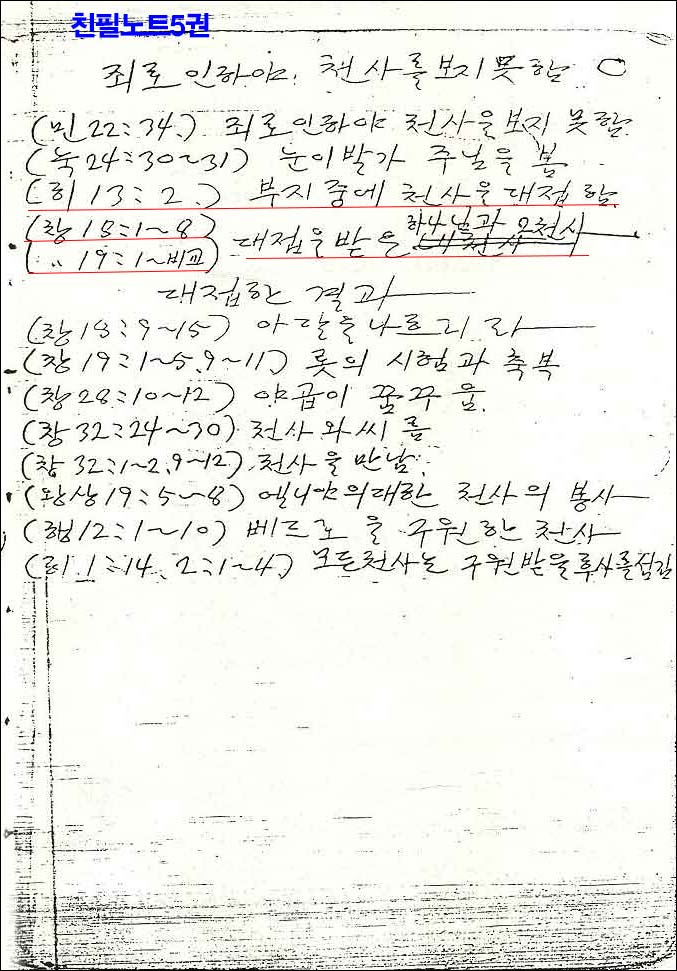 친필노트5권
죄로인하야. 천사를보지못함
(민22:34.) 죄로인하야 천사을보지 못함.
(눅24:30~31) 눈이발가 주님을 봄
(히 13:2.) 부지중에 천사을대접함.
(창 18:1~8)
(〃 19:1~비교) 대접을받은 하나님과 2천사
대접한 결과
(창18:9~15) 아달을나흐리라
(창19:1~5.9~11) 롯의 시험과 축복
(창28:10~12) 야곱이 꿈꾸움.
(창32:24~30) 천사와씨름
(창32:1~2.9~12) 천사을만남.
(왕상19:5~8) 에니야의대한 천사의 봉사
(행12:1~10) 베드로을 구원한 천사
(히1:14. 2:1~4.) 모든천사는 구원받을후사를섬김